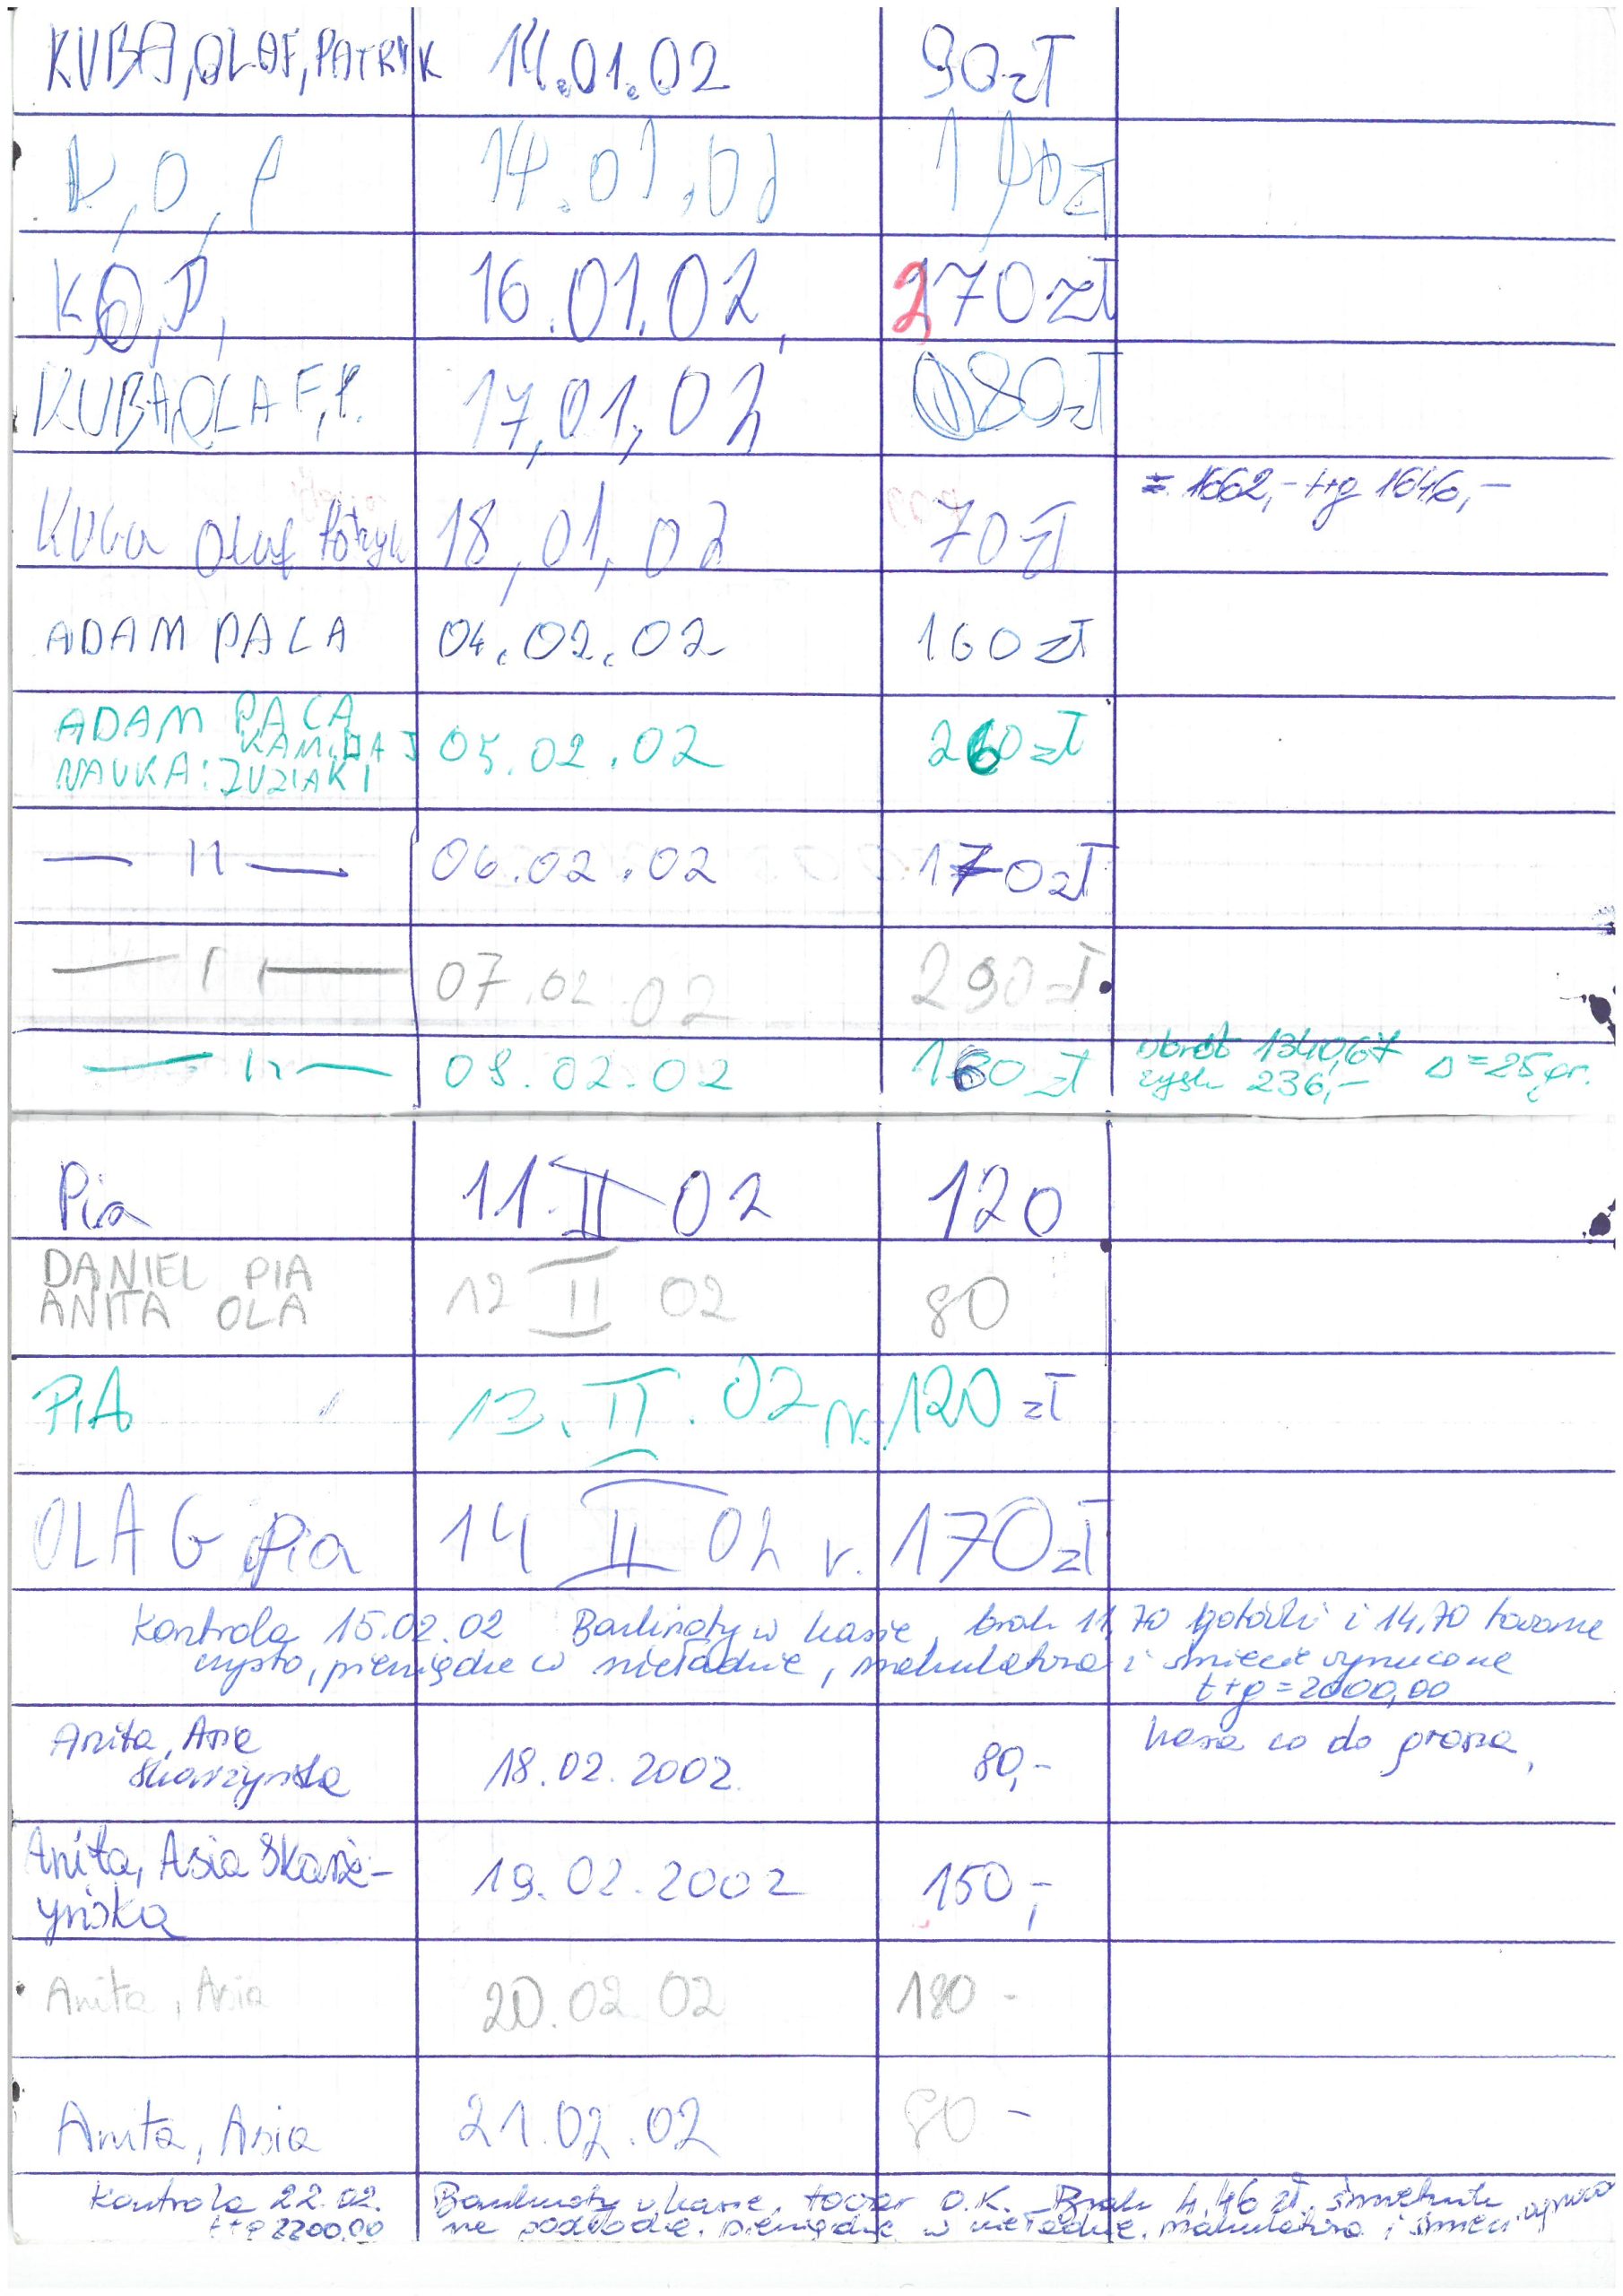 KUBA, OLAF, PATRYK 14.01.02 90 zł
K, O, P 14.01.02 140 zł
K, O, P, 16.01.02, 270 zł
KUBA, OLAF, P. 17,01,02 80 zł
Kuba Olaf Patryk 18,01,02 70 zł = 1662,- t+g 1646,-
ADAM PALA 04.02.02 160 zł
ADAM PACA 05.02.02 260 zł
NAUKA: ZUZIA KI
— 11 — 06.02.02 170 zł
— 11 — 07.02 02 290 zł
— 11 — 08.02.02 160 zł obrót 1340,67 Δ = 25 gr.
zysk 236,-
Pia 11. II 02 120
DANIEL PIA 12 II 02 80
ANITA OLA
PiA 13. II. 02 r. 120 zł
OLA G Pia 14 II 02 r. 170 zł
Kontrola 15.02.02 Banknoty w kasie, brak 11,70 gotówki i 14,70 towaru
czysto, pieniądze w nieładzie, makulatura i śmieci wyrzucone
t+g = 2000,00
Anita, Asia 18.02.2002. 80,- kasa co do grosza,
Skarżyńska
Anita, Asia Skarż- 19.02.2002 150,-
yńska
Anita, Asia 20.02 02 180 -
Anita, Asia 21.02.02 80 -
Kontrola 22.02. Banknoty w kasie, towar O.K. Brak 4,46 zł,
t+g 2200,00 na podłodze, pieniądze w nieładzie, makulatura i śmieci